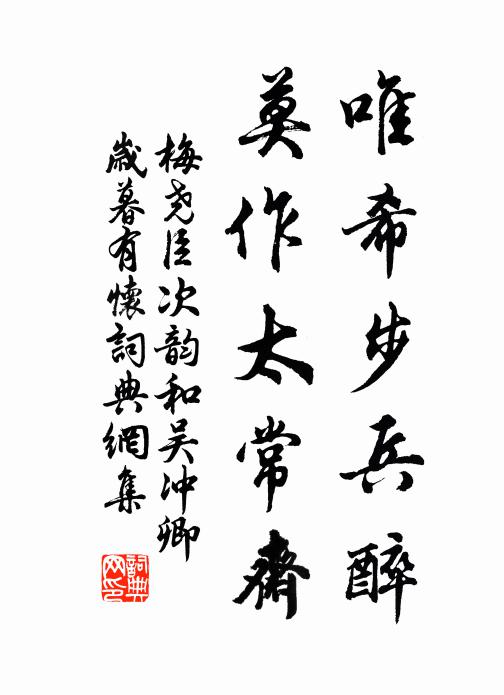 唯希步兵醉
莫作太常齋
梅堯臣次韵和吴沖卿
歲暮有懷詞典網集
詞典
网印